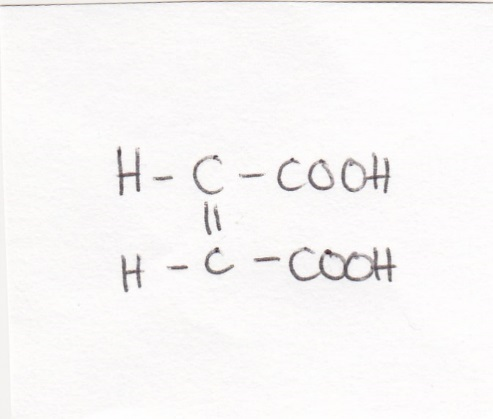 H - C - COOH
||
H - C - COOH